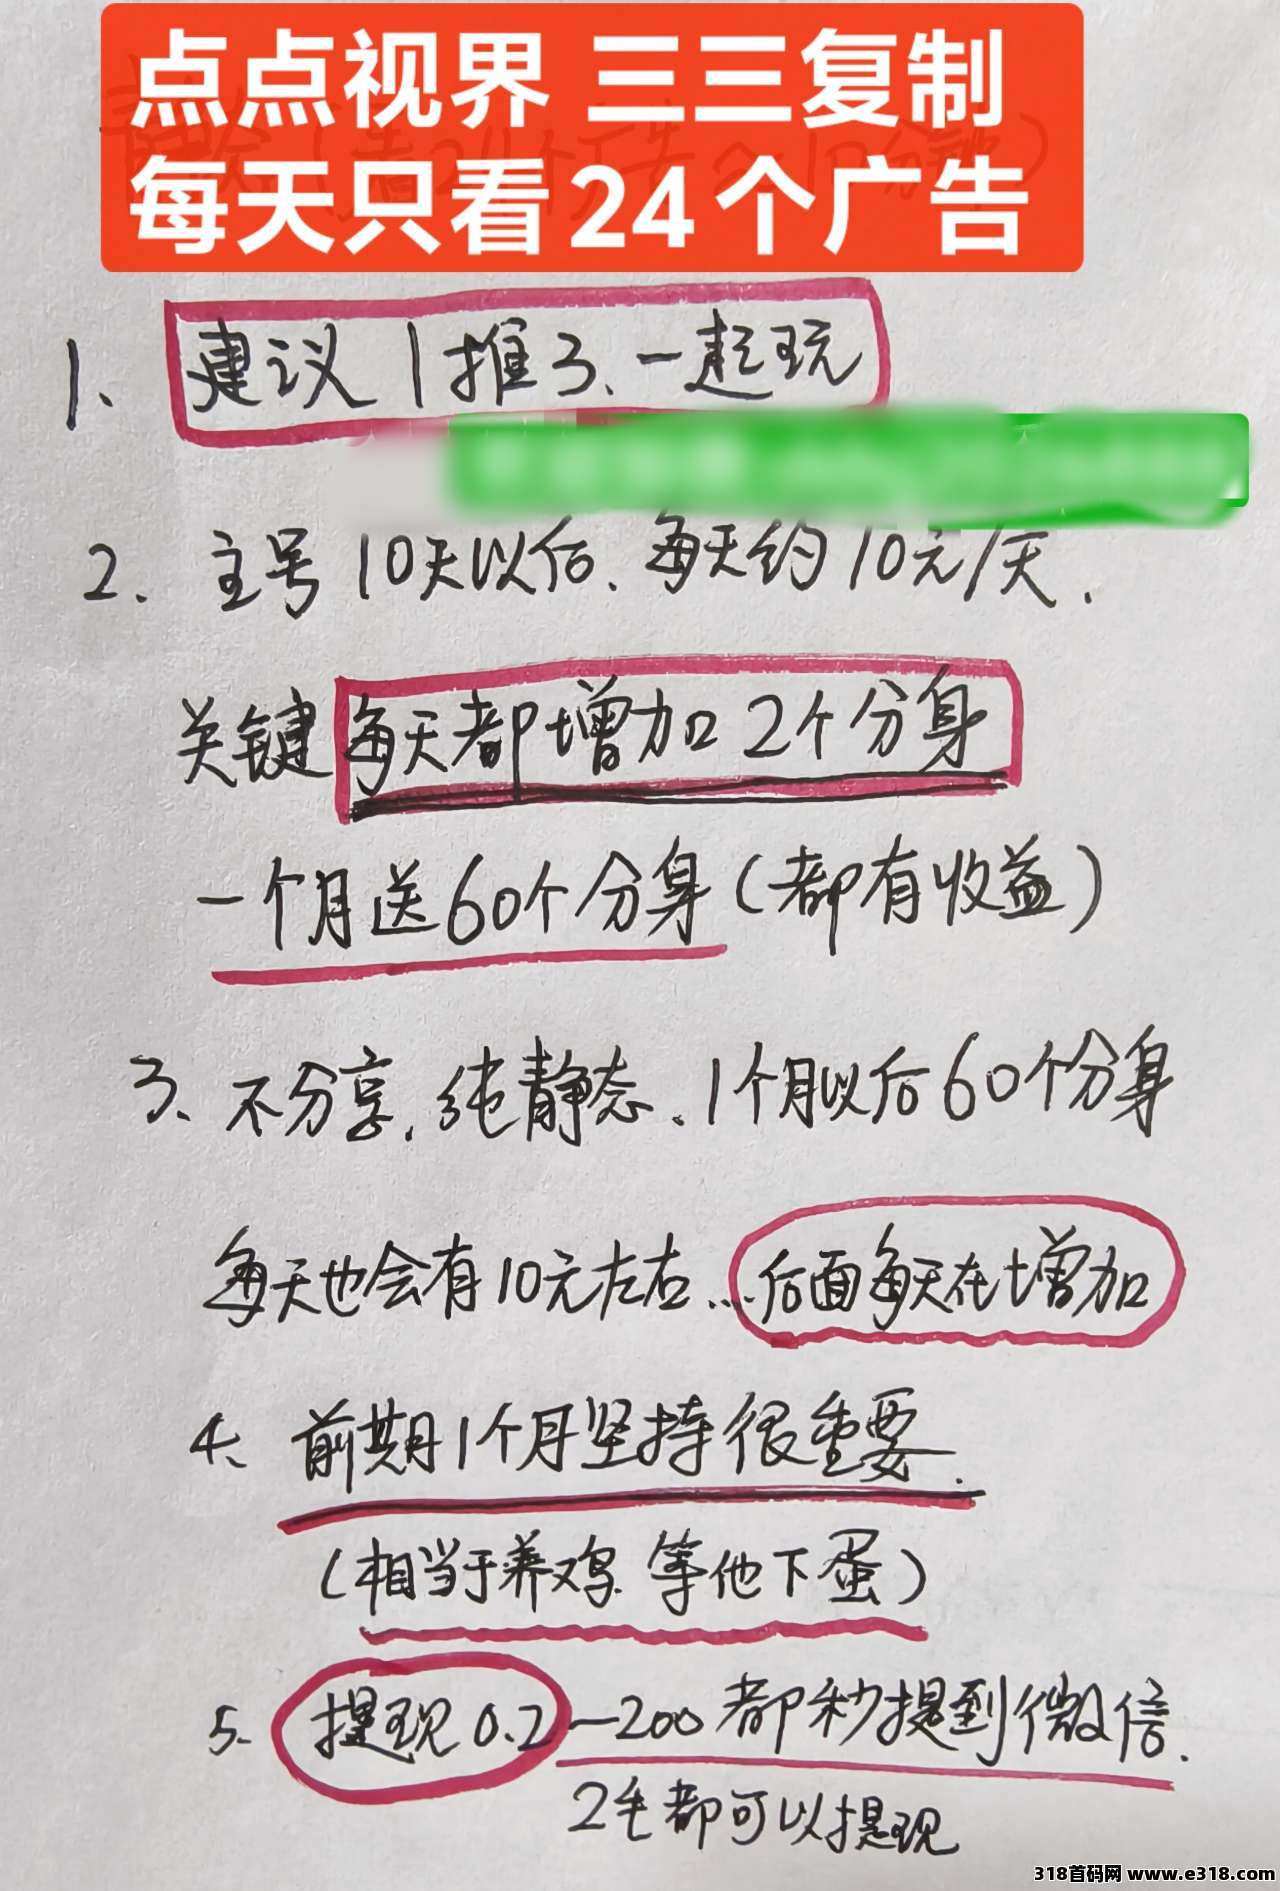 点点视界 三三复制
每天只看24个广告
1、建议1推3、一起玩
2. 主号10天以后、每天约10元/天.
关键每天都增加2个分身
一个月送60个分身(都有收益)
3、不分享,纯静态、1个月以后60个分身
每天也会有10元左右...后面每天在增加
4、前期1个月坚持很重要.
(相当于养鸡 等他下蛋)
5. 提现0.2—200都秒提到微信.
2毛都可以提现
318首码网 www.e318.com